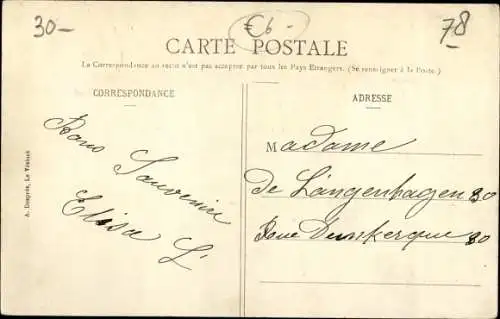 30-
€6-
78
CARTE POSTALE
La Correspondance au recto n'est pas acceptée par tous les Pays Etrangers. (Se renseigner à la Poste.)
CORRESPONDANCE
ADRESSE
Bons Souvenirs
Elisa L
Madame
de Langenhagen 30
Rue Dunkerque 30
A. Després, Le Vésinet